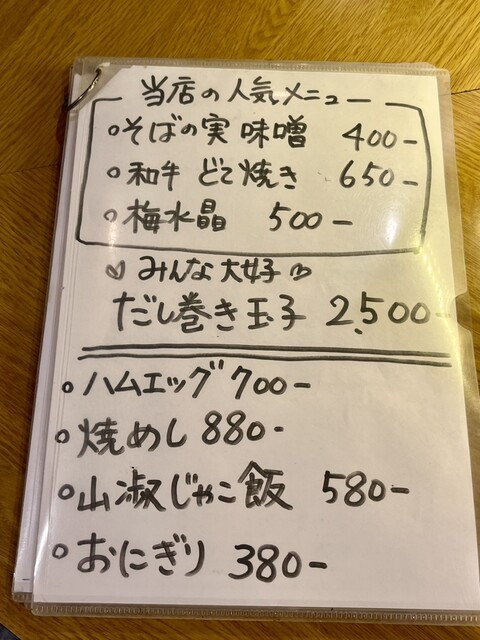 当店の人気メニュー
○そばの実味噌 400-
○和牛どて焼き 650-
○梅水晶 500-
♡みんな大好♡
だし巻き玉子 2,500-
○ハムエッグ 700-
○焼めし 880-
○山椒じゃこ飯 580-
○おにぎり 380-